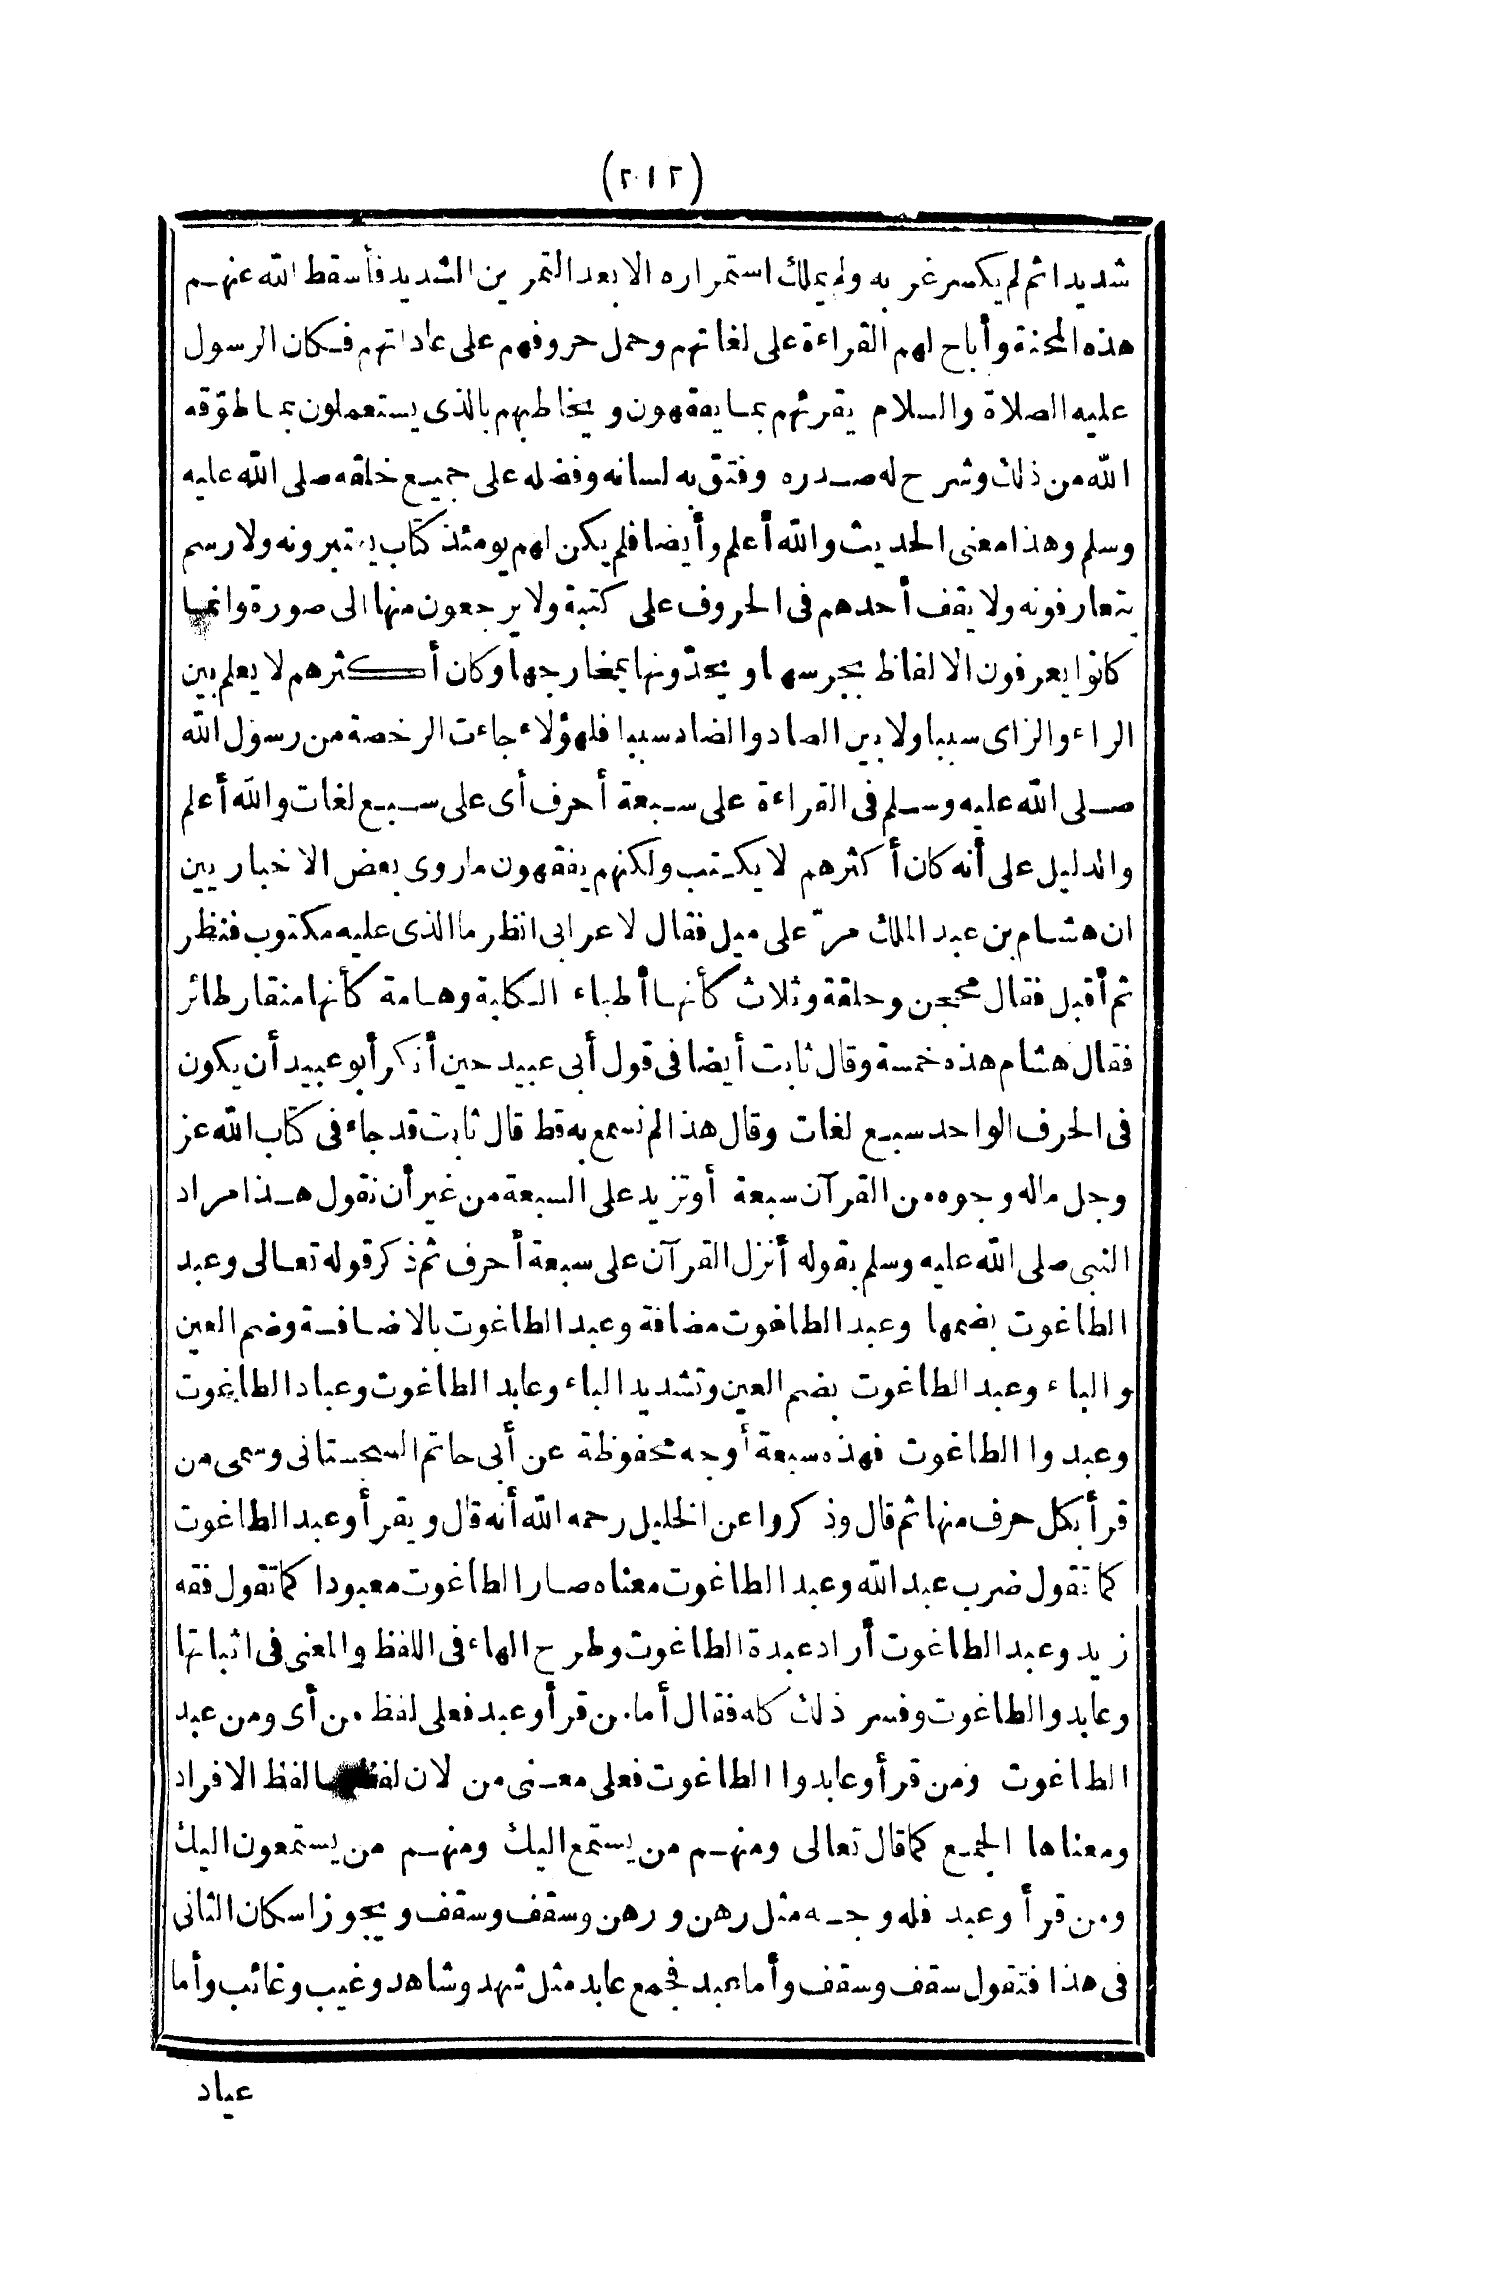 (٢١٢)
شديدا ثم لم يكسر غربه ولم يملك استمراره الا بعد التمرين الشديد فأسقط الله عنهم
هذه المحنة وأباح لهم القراءة على لغاتهم وحمل حروفهم على عاداتهم فكان الرسول
عليه الصلاة والسلام يقرئهم بما يفقهون ويخاطبهم بالذى يستعملون بما طوّقه
الله من ذلك وشرح له صدره وفتق به لسانه وفضله على جميع خلقه صلى الله عليه
وسلم وهذا معنى الحديث والله أعلم وأيضا فلم يكن لهم يومئذ كتاب يعتبرونه ولا رسم
يتعارفونه ولا يقف أحدهم فى الحروف على كتبة ولا يرجعون منها الى صورة وانما
كانوا يعرفون الالفاظ بجرسها ويحدّونها بمخارجها وكان أكثرهم لا يعلم بين
الراء والزاى سببا ولا بين الصاد والضاد سببا فلهؤلاء جاءت الرخصة من رسول الله
صلى الله عليه وسلم فى القراءة على سبعة أحرف أى على سبع لغات والله أعلم
والدليل على أنه كان أكثرهم لا يكتب ولكنهم يفقهون ما روى بعض الاخباريين
ان هشام بن عبد الملك مرّ على ميل فقال لاعرابى انظر ما الذى عليه مكتوب فنظر
ثم أقبل فقال محجن وحلقة وثلاث كأنها أطباء الكلبة وهامة كأنها منقار طائر
فقال هشام هذه خمسة وقال ثابت أيضا فى قول أبى عبيد حين أنكر أبو عبيد أن يكون
فى الحرف الواحد سبع لغات وقال هذا لم نسمع به قط قال ثابت قد جاء فى كتاب الله عز
وجل ماله وجوه من القرآن سبعة أو تزيد على السبعة من غير أن نقول هذا مراد
النبى صلى الله عليه وسلم بقوله أنزل القرآن على سبعة أحرف ثم ذكر قوله تعالى وعبد
الطاغوت بضمها وعبد الطاغوت مضافة وعبد الطاغوت بالاضافة وضم العين
والباء وعبد الطاغوت بضم العين وتشديد الباء وعابد الطاغوت وعباد الطاغوت
وعبدوا الطاغوت فهذه سبعة أوجه محفوظة عن أبى حاتم السجستانى وسمى من
قرأ بكل حرف منها ثم قال وذكروا عن الخليل رحمه الله أنه قال ويقرأ وعبد الطاغوت
كما تقول ضرب عبد الله وعبد الطاغوت معناه صار الطاغوت معبودا كما تقول فقه
زيد وعبد الطاغوت أراد عبدة الطاغوت وطرح الهاء فى اللفظ والمعنى فى اثباتها
وعابدو الطاغوت وفسر ذلك كله فقال أما من قرأ وعبد فعلى لفظ من أى ومن عبد
الطاغوت ومن قرأ وعابدوا الطاغوت فعلى معنى من لان لفظها لفظ الافراد
ومعناها الجمع كما قال تعالى ومنهم من يستمع اليك ومنهم من يستمعون اليك
ومن قرأ وعبد فله وجه مثل رهن ورهن وسقف وسقف ويجوز اسكان الثانى
فى هذا فتقول سقف وسقف وأما عبد فجمع عابد مثل شهد وشاهد وغيب وغائب وأما
عباد